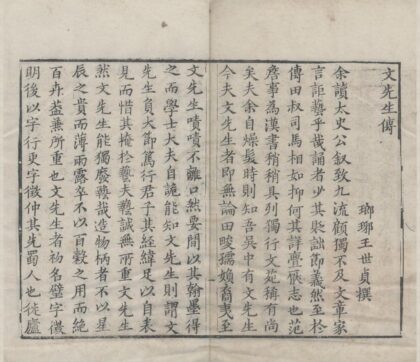 文先生傳
瑯琊王世貞撰
余讀太史公叙致九流顧獨不及文章家
言詎藝乎哉誦者少其貶詘節義然至於
傳田叔司馬相如抑何其詳亹展志也范
詹事為漢書稍稍具列獨行文苑稱有尚
矣夫余自燥髮時則知吾吳中有文先生
今夫文先生者即無論田畯孺婦裔夷至
文先生嘖嘖不離口然要間以其翰墨得
之而學士大夫自詭能知文先生則謂文
先生負大節篤行君子其經緯足以自表
見而惜其掩於藝夫藝誠無所重文先生
然文先生能獨廢藝哉造物柄者不以星
辰之貴而薄雨露卒不以百穀之用而絕
百卉蓋兼所重也文先生者初名璧字徵
明後以字行更字徵仲其先蜀人也徙廬